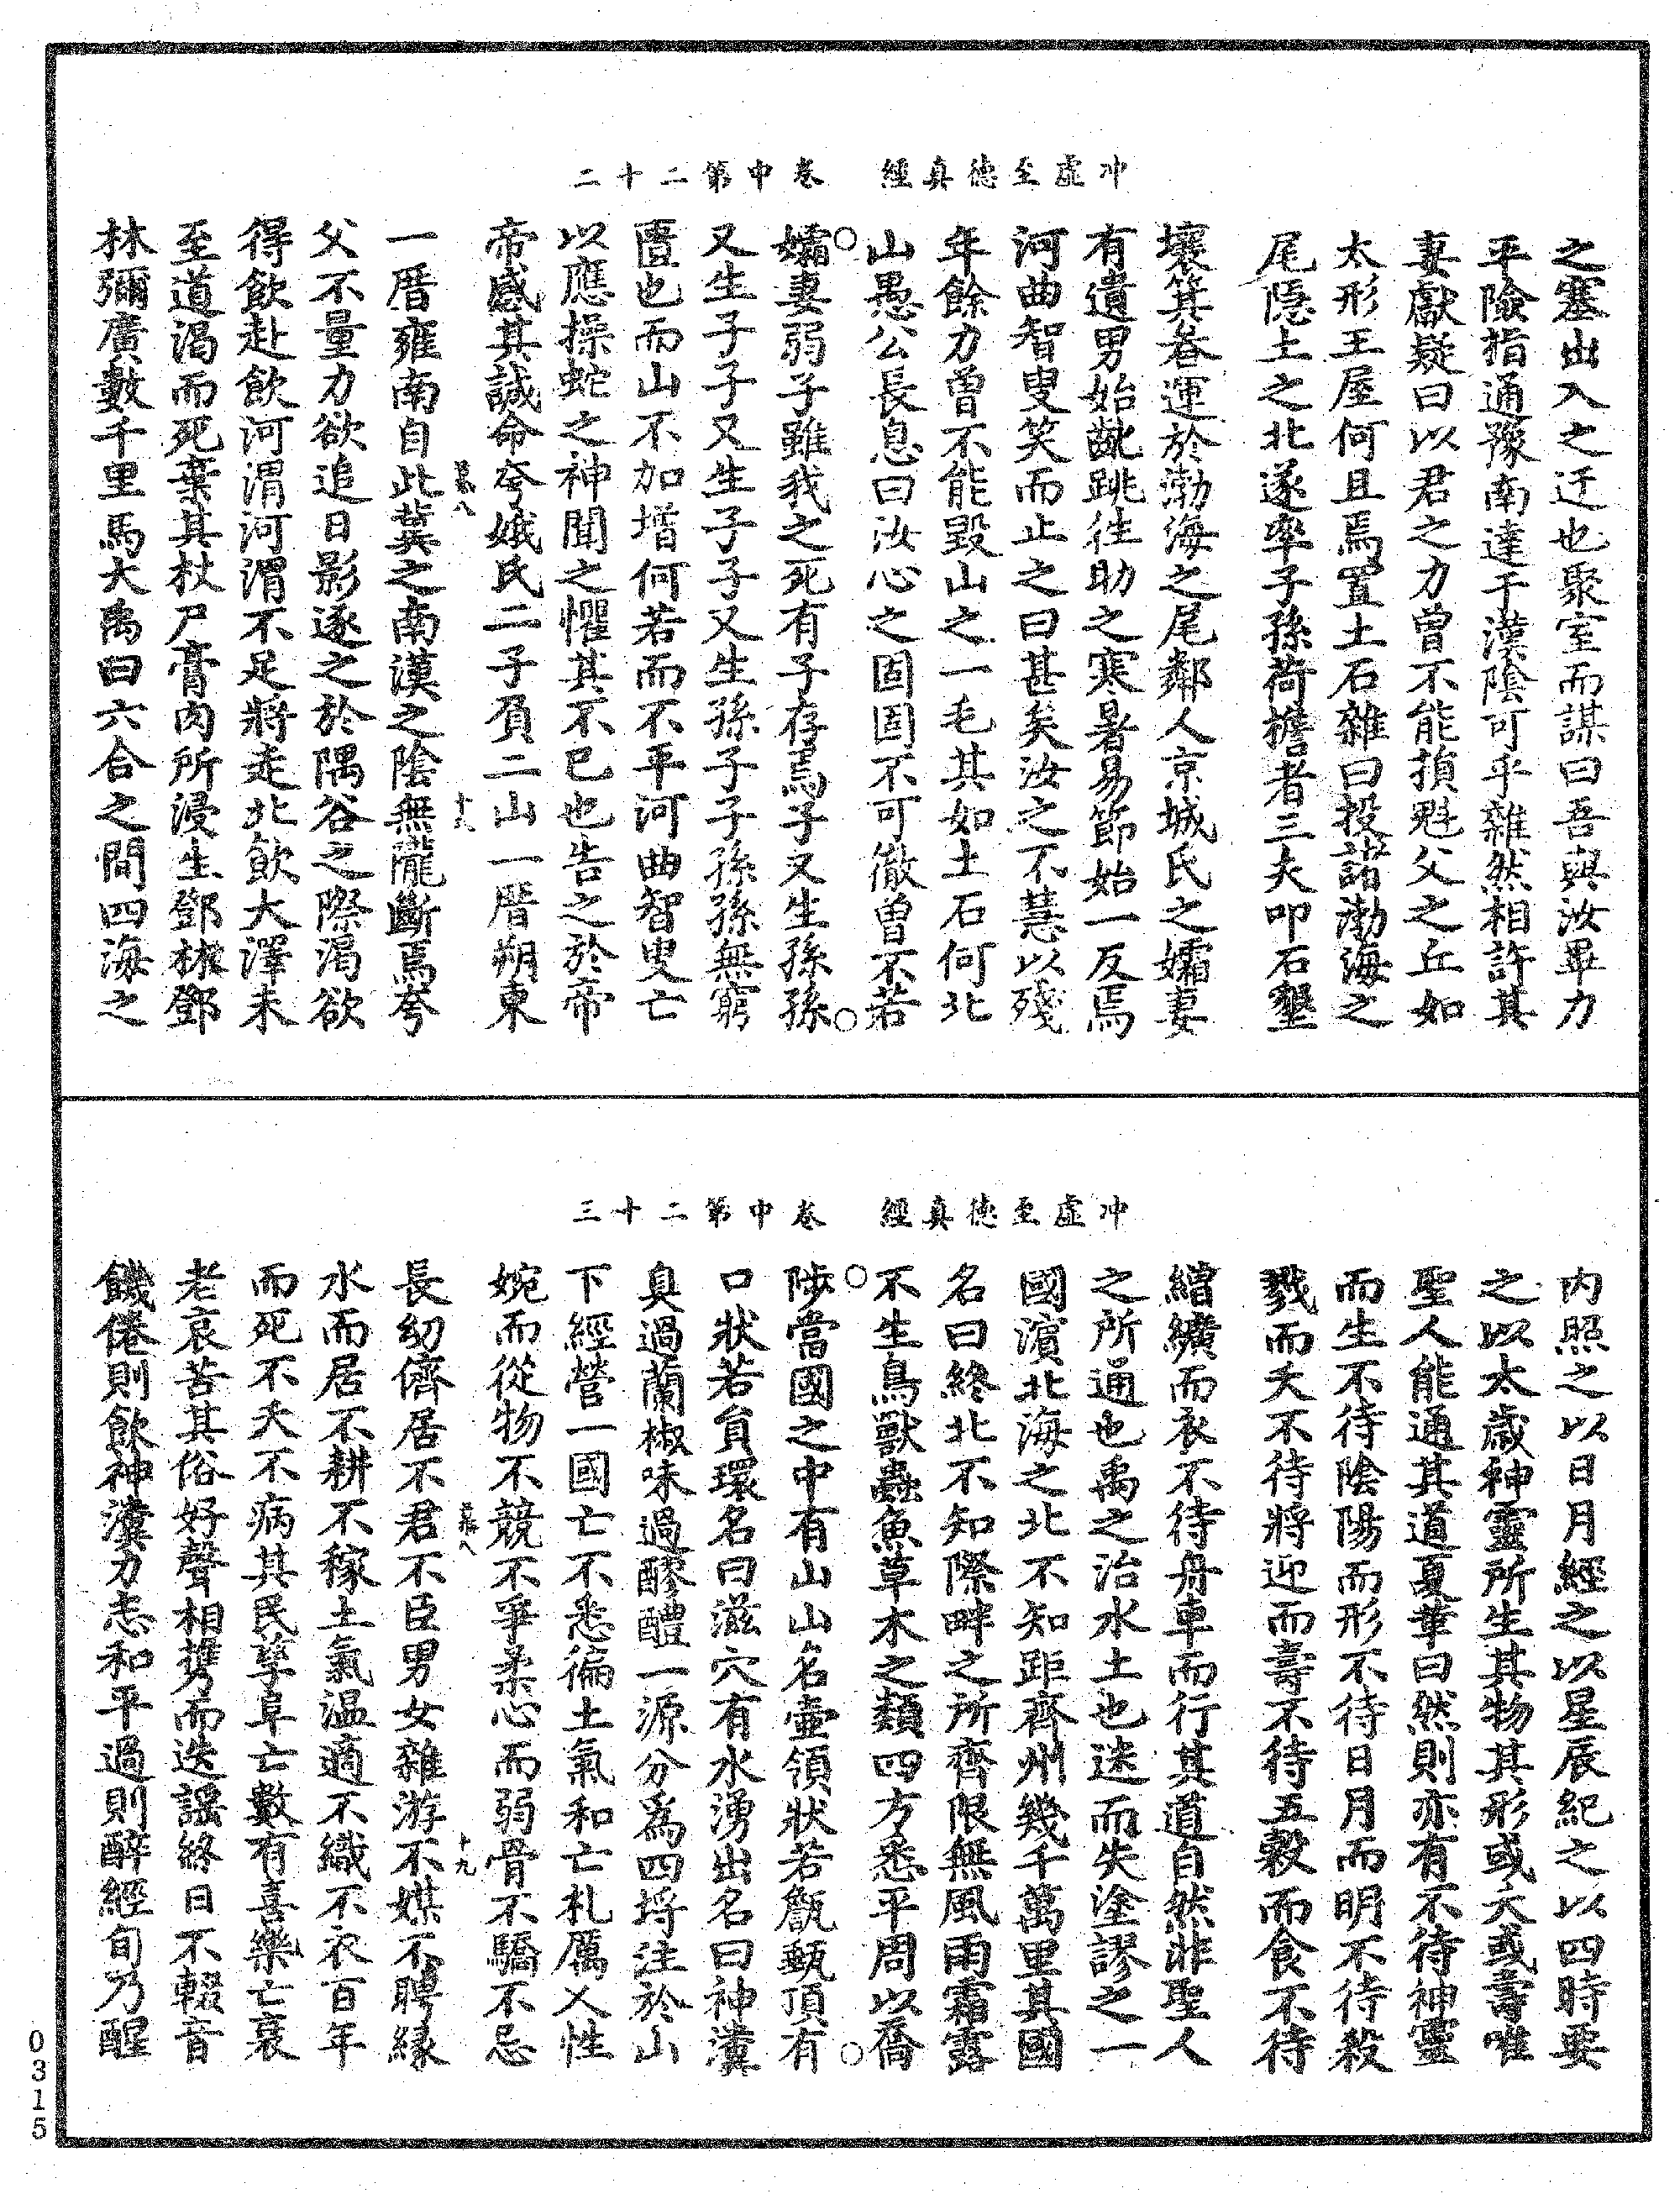 冲虛至德真經　卷中第二十二
之塞出入之迂也聚室而謀曰吾與汝畢力
平險指通豫南達于漢陰可乎雜然相許其
妻獻疑曰以君之力曾不能損魁父之丘如
太形王屋何且焉置土石雜曰投諸渤海之
尾隱土之北遂率子孫荷檐者三夫叩石墾
壤箕畚運於渤海之尾鄰人京城氏之孀妻
有遺男始齓跳往助之寒暑易節始一反焉
河曲智叟笑而止之曰甚矣汝之不慧以殘
年餘力曾不能毀山之一毛其如土石何北
山愚公長息曰汝心之固固不可徹曾不若
孀妻弱子雖我之死有子存焉子又生孫孫
又生子子又生子子又生孫子子孫孫無窮
匱也而山不加增何若而不平河曲智叟亡
以應操蛇之神聞之懼其不已也告之於帝
帝感其誠命夸娥氏二子負二山一厝朔東
一厝雍南自此冀之南漢之陰無隴斷焉夸
父不量力欲追日影逐之於隅谷之際渴欲
得飲赴飲河渭河渭不足將走北飲大澤未
至道渴而死棄其杖尸膏肉所浸生鄧林鄧
林彌廣數千里焉大禹曰六合之間四海之
十八
冲虛至德真經　卷中第二十三
内照之以日月經之以星辰紀之以四時要
之以太歲神靈所生其物其形或夭或壽唯
聖人能通其道夏革曰然則亦有不待神靈
而生不待陰陽而形不待日月而明不待殺
戮而夭不待將迎而壽不待五穀而食不待
繒纊而衣不待舟車而行其道自然非聖人
之所通也禹之治水土也迷而失塗謬之一
國濵北海之北不知距齊州幾千萬里其國
名曰終北不知際畔之所齊限無風雨霜露
不生鳥獸蟲魚草木之類四方悉平周以喬
陟當國之中有山山名壷領狀若甔甀頂有
口狀若貟環名曰滋穴有水湧出名曰神瀵
臭過蘭椒味過醪醴一源分爲四埒注於山
下經營一國亡不悉徧土氣和亡札厲人性
婉而從物不競不爭柔心而弱骨不驕不忌
長幼儕居不君不臣男女雜游不媒不聘緣
水而居不耕不稼土氣温適不織不衣百年
而死不夭不病其民孳阜亡數有喜樂亡衰
老哀苦其俗好聲相携而迭謡終日不輟音
饑倦則飲神瀵力志和平過則醉經旬乃醒
十九
0315